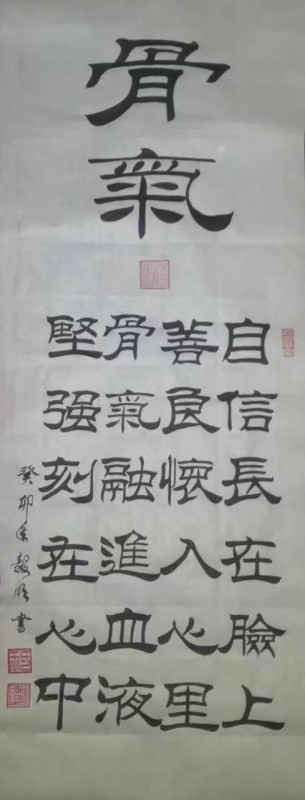 骨氣
自信長在臉上
善良懷入心里
骨氣融進血液
堅强刻在心中
癸卯冬
書